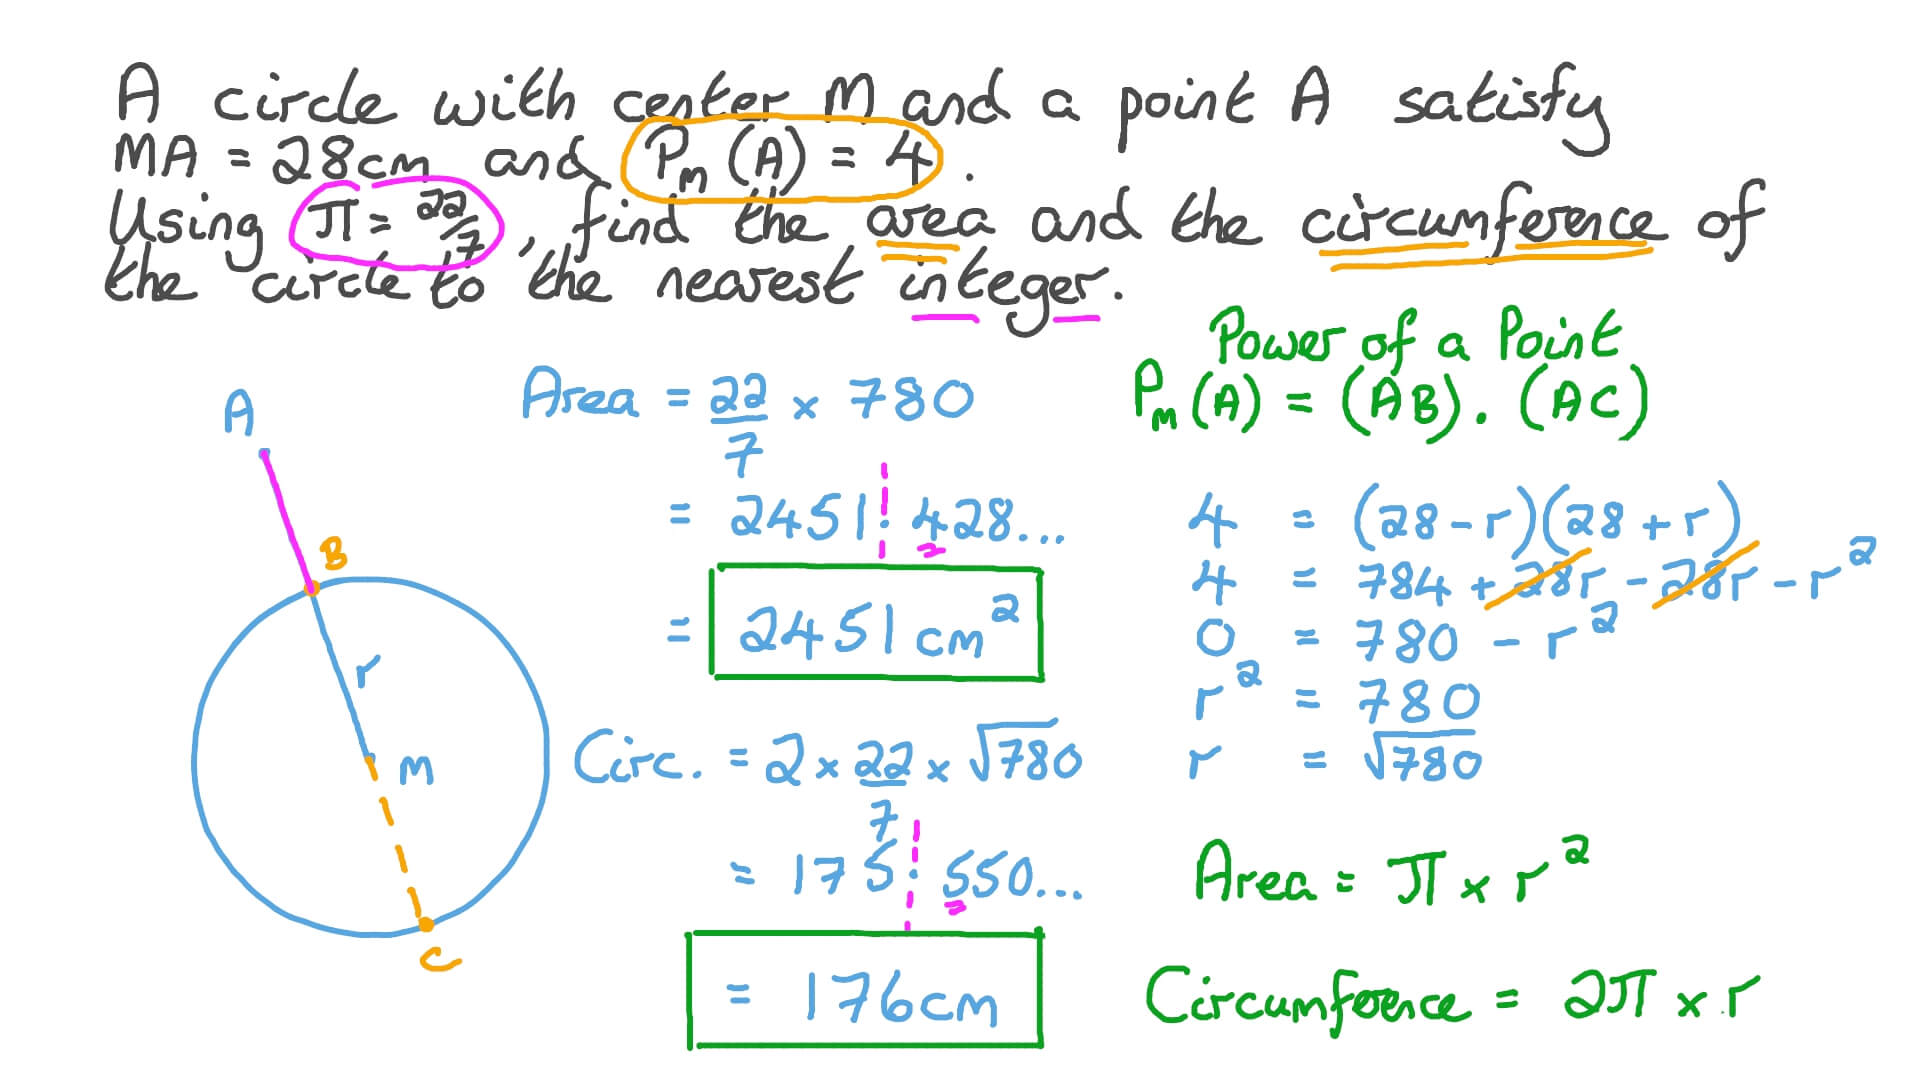 A circle with center M and a point A satisfy
MA = 28cm and P_M(A) = 4.
Using π = 22/7, find the area and the circumference of
the circle to the nearest integer.
A
B
r
M
C
Area = 22/7 × 780
= 2451.428...
= 2451 cm²
Circ. = 2 × 22/7 × √780
= 175.550...
= 176cm
Power of a Point
P_M(A) = (AB).(AC)
4 = (28-r)(28+r)
4 = 784 + 28r - 28r - r²
0 = 780 - r²
r² = 780
r = √780
Area = π × r²
Circumference = 2π × r